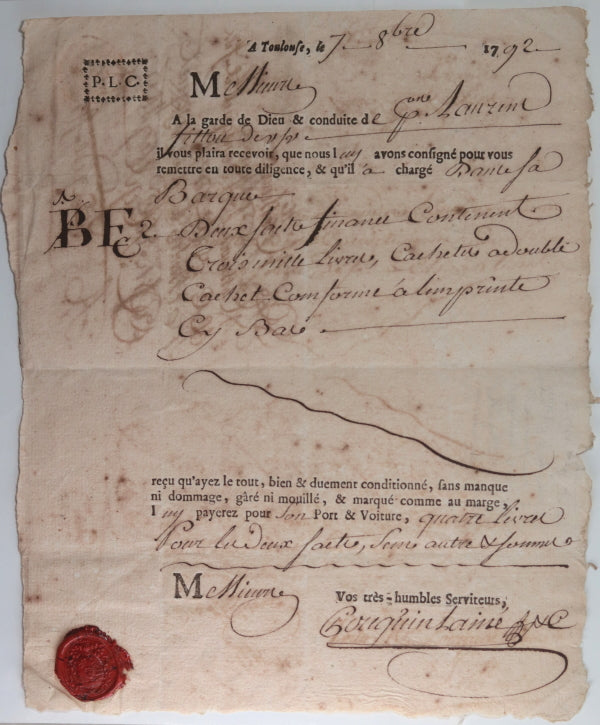 A Toulouse, le 7 8bre 1792
P. L. C.
Messieurs
A la garde de Dieu & conduite de Laurent
il vous plaira recevoir, que nous luy avons consigné pour vous
remettre en toute diligence, & qu'il a chargé Dans sa
Barque
BF 2 Deux sacts finance Contenent
Trois mille livres, Cachettés a double
Cachet Conforme a l'imprinte
Cy Bas
reçu qu'ayez le tout, bien & duement conditionné, sans manque
ni dommage, gâré ni mouillé, & marqué comme au marge,
luy payerez pour son Port & Voiture, quatre livres
Pour les deux sacts, sans autre
Messieurs
Vos très-humbles Serviteurs,